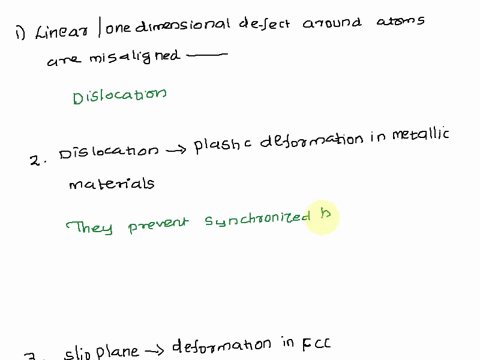 i) Linear | one dimensional defect around atoms
are misaligned ——
Dislocation
2. Dislocation → plastic deformation in metallic
materials
They prevent synchronized
3. slip plane → deformation in FCC